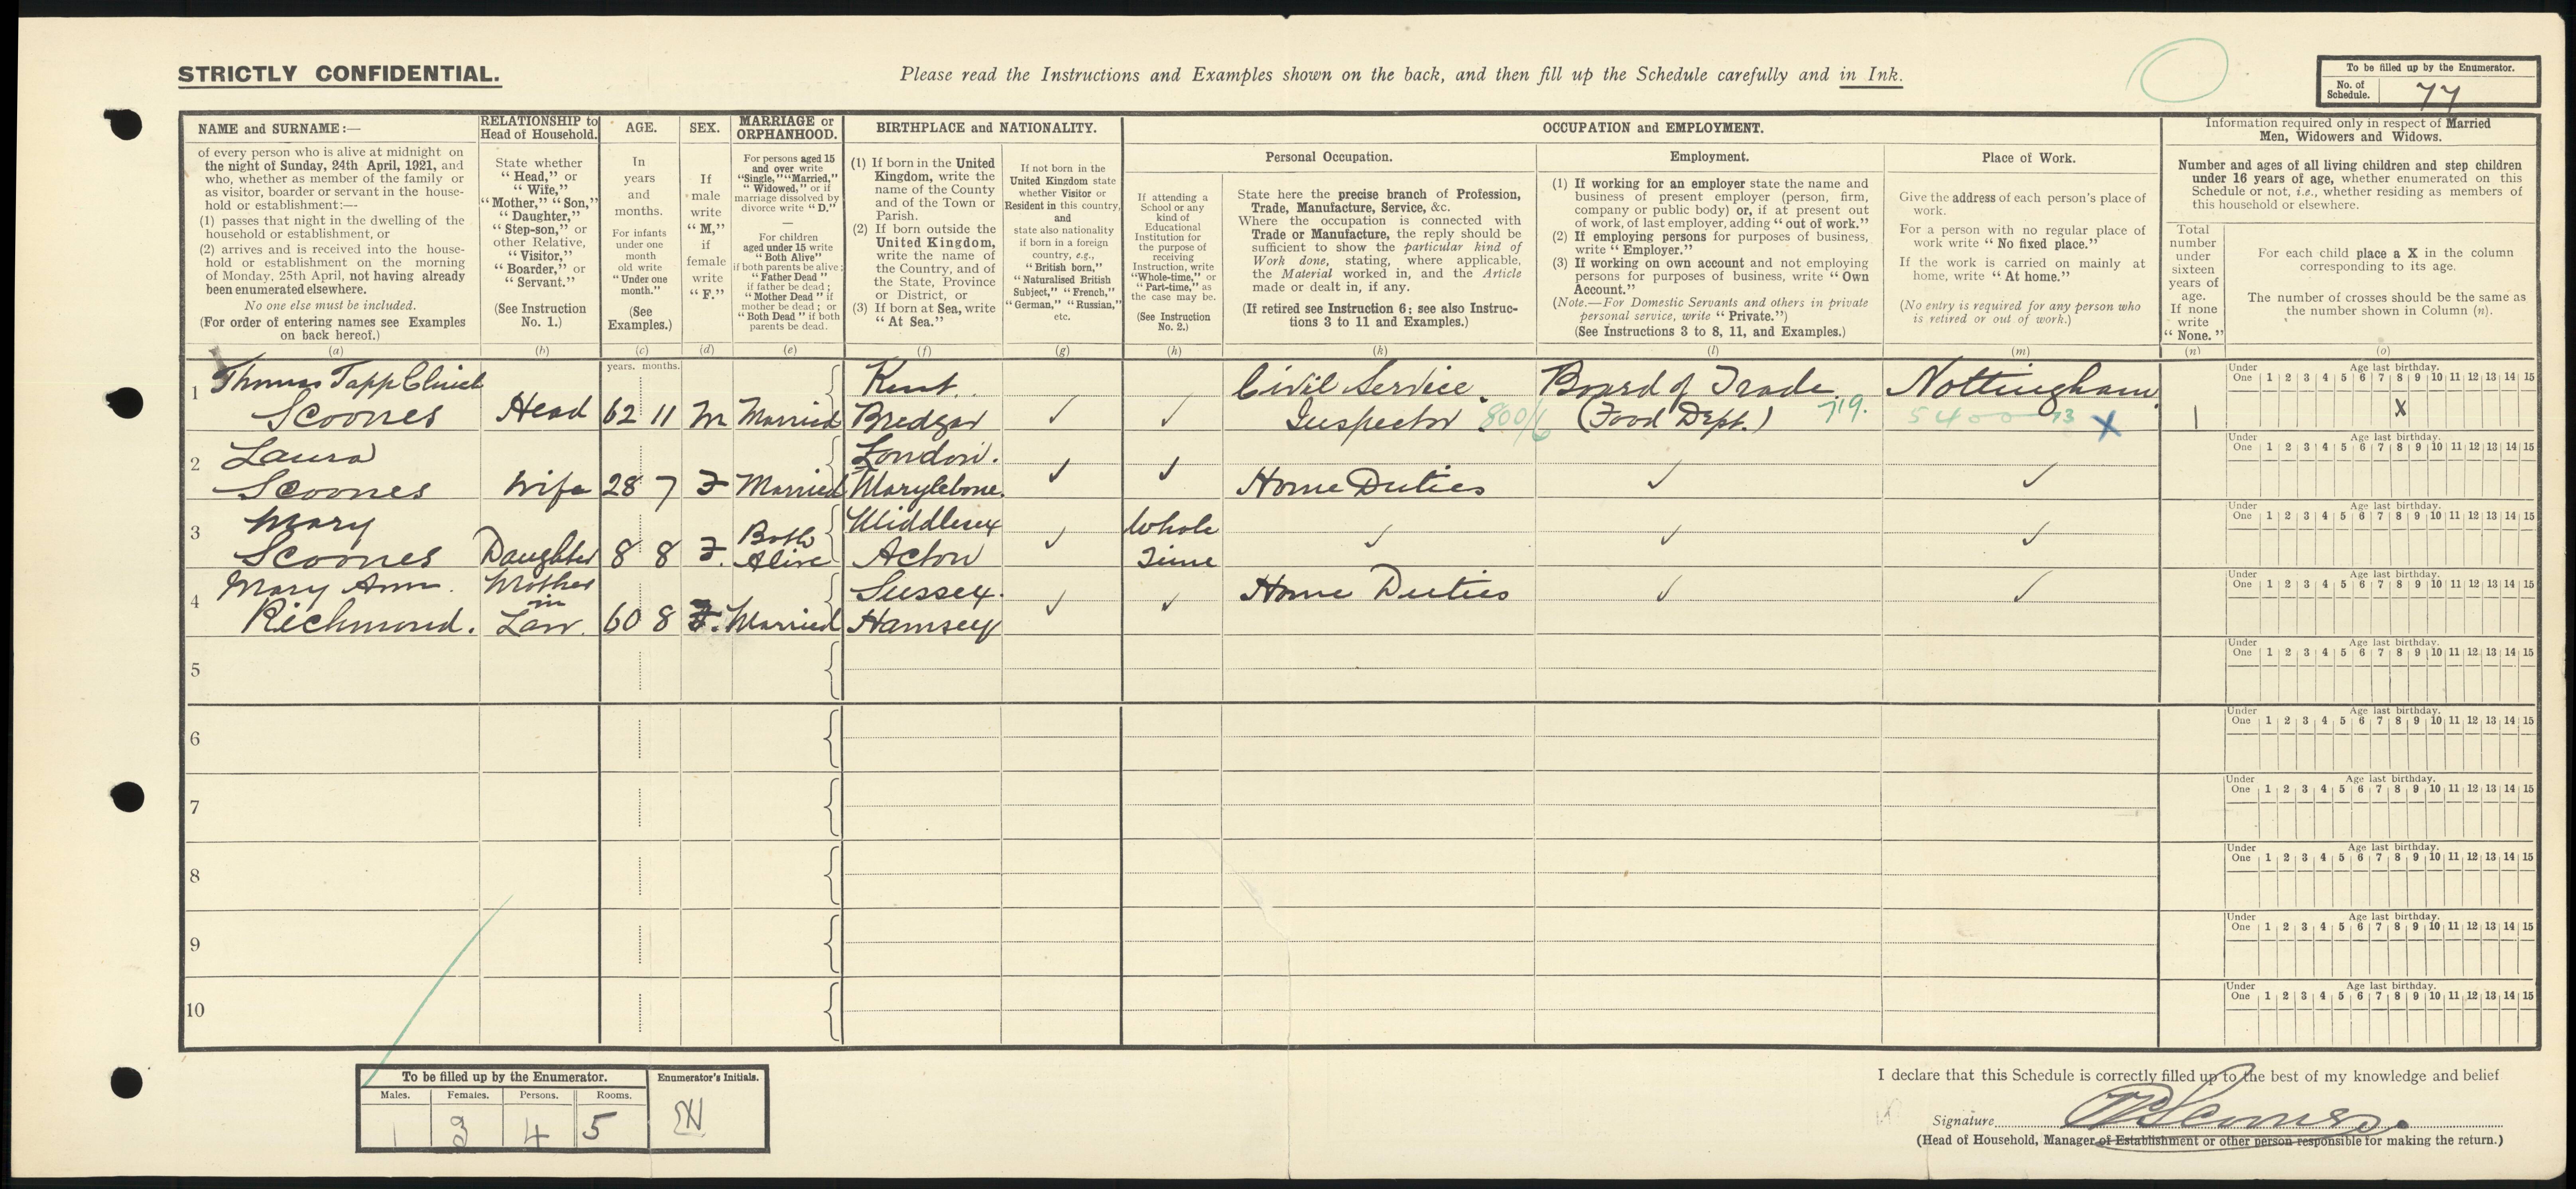 STRICTLY CONFIDENTIAL.
Please read the Instructions and Examples shown on the back, and then fill up the Schedule carefully and in Ink.
To be filled up by the Enumerator.
No. of Schedule. 77
NAME and SURNAME :—
of every person who is alive at midnight on
the night of Sunday, 24th April, 1921, and
who, whether as member of the family or
as visitor, boarder or servant in the house-
hold or establishment:—
(1) passes that night in the dwelling of the
household or establishment, or
(2) arrives and is received into the house-
hold or establishment on the morning
of Monday, 25th April, not having already
been enumerated elsewhere.
No one else must be included.
(For order of entering names see Examples
on back hereof.)
(a)
RELATIONSHIP to
Head of Household.
State whether
"Head," or
"Wife,"
"Mother," "Son,"
"Daughter,"
"Step-son," or
other Relative,
"Visitor,"
"Boarder," or
"Servant."
(See Instruction
No. 1.)
(b)
AGE.
In
years
and
months.
For infants
under one
month
old write
"Under one
month."
(See
Examples.)
(c)
SEX.
If
male
write
"M,"
if
female
write
"F."
(d)
MARRIAGE or
ORPHANHOOD.
For persons aged 15
and over write
"Single," "Married,"
"Widowed," or if
marriage dissolved by
divorce write "D."
—
For children
aged under 15 write
"Both Alive"
if both parents be alive;
"Father Dead"
if father be dead;
"Mother Dead" if
mother be dead; or
"Both Dead" if both
parents be dead.
(e)
BIRTHPLACE and NATIONALITY.
(1) If born in the United
Kingdom, write the
name of the County
and of the Town or
Parish.
(2) If born outside the
United Kingdom,
write the name of
the Country, and of
the State, Province
or District, or
(3) If born at Sea, write
"At Sea."
(f)
If not born in the
United Kingdom state
whether Visitor or
Resident in this country,
and
state also nationality
if born in a foreign
country, e.g.,
"British born,"
"Naturalised British
Subject," "French,"
"German," "Russian,"
etc.
(g)
OCCUPATION and EMPLOYMENT.
Personal Occupation.
If attending a
School or any
kind of
Educational
Institution for
the purpose of
receiving
Instruction, write
"Whole-time," or
"Part-time," as
the case may be.
(See Instruction
No. 2.)
(h)
State here the precise branch of Profession,
Trade, Manufacture, Service, &c.
Where the occupation is connected with
Trade or Manufacture, the reply should be
sufficient to show the particular kind of
Work done, stating, where applicable,
the Material worked in, and the Article
made or dealt in, if any.
(If retired see Instruction 6; see also Instruc-
tions 3 to 11 and Examples.)
(k)
Employment.
(1) If working for an employer state the name and
business of present employer (person, firm,
company or public body) or, if at present out
of work, of last employer, adding "out of work."
(2) If employing persons for purposes of business,
write "Employer."
(3) If working on own account and not employing
persons for purposes of business, write "Own
Account."
(Note.—For Domestic Servants and others in private
personal service, write "Private.")
(See Instructions 3 to 8, 11, and Examples.)
(l)
Place of Work.
Give the address of each person's place of
work.
For a person with no regular place of
work write "No fixed place."
If the work is carried on mainly at
home, write "At home."
(No entry is required for any person who
is retired or out of work.)
(m)
Information required only in respect of Married
Men, Widowers and Widows.
Number and ages of all living children and step children
under 16 years of age, whether enumerated on this
Schedule or not, i.e., whether residing as members of
this household or elsewhere.
Total
number
under
sixteen
years of
age.
If none
write
"None."
(n)
For each child place a X in the column
corresponding to its age.
The number of crosses should be the same as
the number shown in Column (n).
(o)
years. months.
Under One Age last birthday. 1 2 3 4 5 6 7 8 9 10 11 12 13 14 15
1 Thomas Tapp
Scoones Head 62 11 M Married Kent. Bredgar ✓ ✓ Civil Service. Inspector 800/6 Board of Trade. (Food Dept.) 719. Nottingham. X 1 X
Under One Age last birthday. 1 2 3 4 5 6 7 8 9 10 11 12 13 14 15
2 Laura
Scoones Wife 28 7 F Married London. Marylebone. ✓ ✓ Home Duties ✓ ✓
Under One Age last birthday. 1 2 3 4 5 6 7 8 9 10 11 12 13 14 15
3 Mary
Scoones Daughter 8 8 F. Both Alive Middlesex Acton ✓ Whole Time ✓ ✓ ✓
Under One Age last birthday. 1 2 3 4 5 6 7 8 9 10 11 12 13 14 15
4 Mary Ann.
Richmond. Mother in Law. 60 8 F. Married Sussex. Hamsey ✓ ✓ Home Duties ✓ ✓
Under One Age last birthday. 1 2 3 4 5 6 7 8 9 10 11 12 13 14 15
5
Under One Age last birthday. 1 2 3 4 5 6 7 8 9 10 11 12 13 14 15
6
Under One Age last birthday. 1 2 3 4 5 6 7 8 9 10 11 12 13 14 15
7
Under One Age last birthday. 1 2 3 4 5 6 7 8 9 10 11 12 13 14 15
8
Under One Age last birthday. 1 2 3 4 5 6 7 8 9 10 11 12 13 14 15
9
Under One Age last birthday. 1 2 3 4 5 6 7 8 9 10 11 12 13 14 15
10
To be filled up by the Enumerator.
Males. Females. Persons. Rooms.
1 3 4 5
Enumerator's Initials.
I declare that this Schedule is correctly filled up to the best of my knowledge and belief
Signature T C Scoones.
(Head of Household, Manager of Establishment or other person responsible for making the return.)